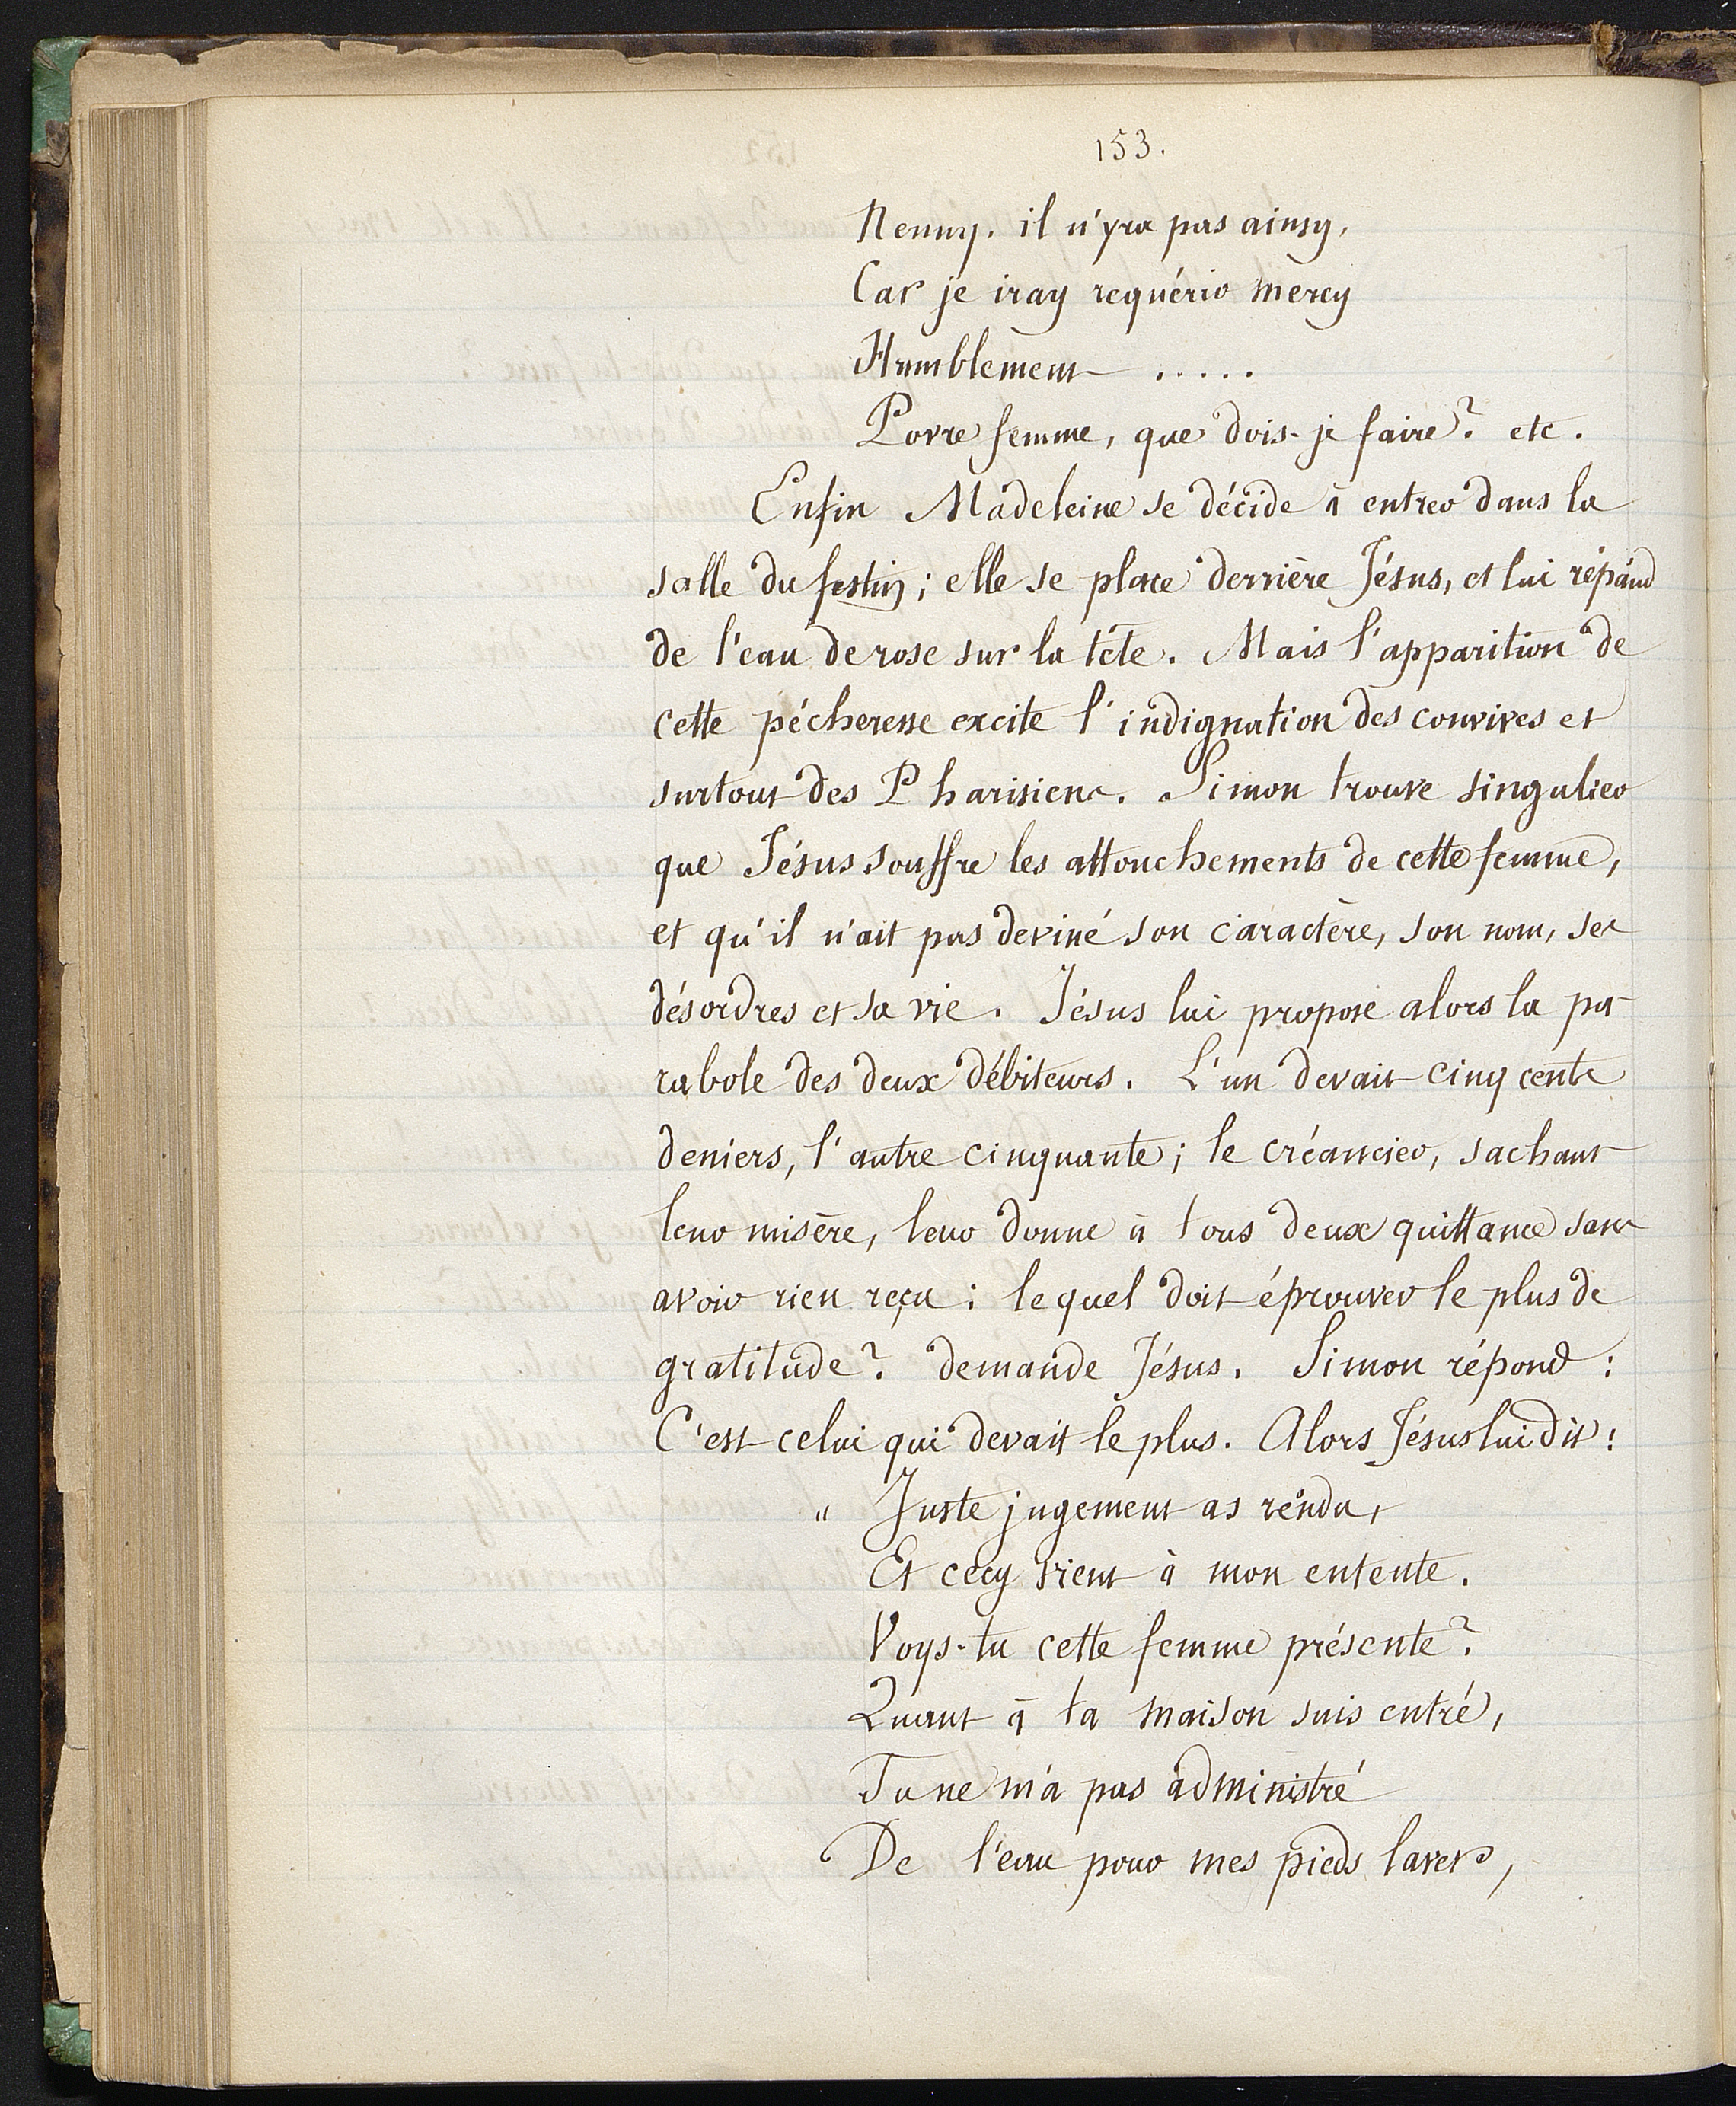 153.
Nenny. il n'yra pas ainsy,
Car je iray requérir mercy
Humblement .....
Povre femme, que dois-je faire? etc.
Enfin Madeleine se décide à entrer dans la
salle du festin; elle se place derrière Jésus, et lui répand
de l'eau de rose sur la tête. Mais l'apparition de
cette pécheresse excite l'indignation des convives et
surtout des Pharisiens. Simon trouve singulier
que Jésus souffre les attouchements de cette femme,
et qu'il n'ait pas deviné son caractère, son nom, ses
désordres et sa vie. Jésus lui propose alors la pa-
rabole des deux débiteurs. L'un devait cinq cents
deniers, l'autre cinquante; le créancier, sachant
leur misère, leur donne à tous deux quittance sans
avoir rien reçu: lequel doit éprouver le plus de
gratitude? demande Jésus. Simon répond:
C'est celui qui devait le plus. Alors Jésus lui dit:
" Juste jugement as rendu,
Et cecy vient à mon entente.
Voys-tu cette femme présente?
Quant à ta maison suis entré,
Tu ne m'a pas administré
De l'eau pour mes pieds laver,